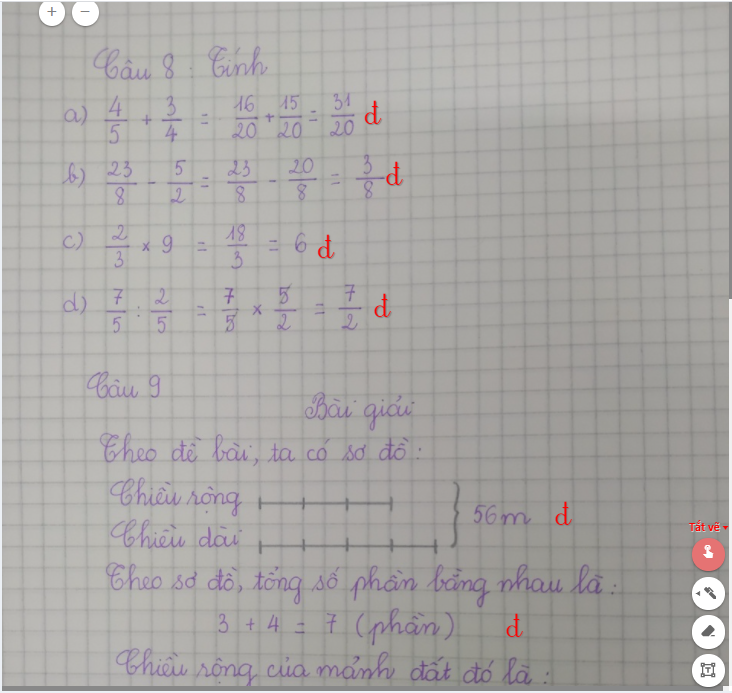 Câu 8 : Tính
a) 4/5 + 3/4 = 16/20 + 15/20 = 31/20 đ
b) 23/8 - 5/2 = 23/8 - 20/8 = 3/8 đ
c) 2/3 × 9 = 18/3 = 6 đ
d) 7/5 : 2/5 = 7/5 × 5/2 = 7/2 đ
Câu 9
Bài giải
Theo đề bài, ta có sơ đồ :
Chiều rộng
56m đ
Chiều dài
Tắt vẽ
Theo sơ đồ, tổng số phần bằng nhau là :
3 + 4 = 7 (phần) đ
Chiều rộng của mảnh đất đó là :